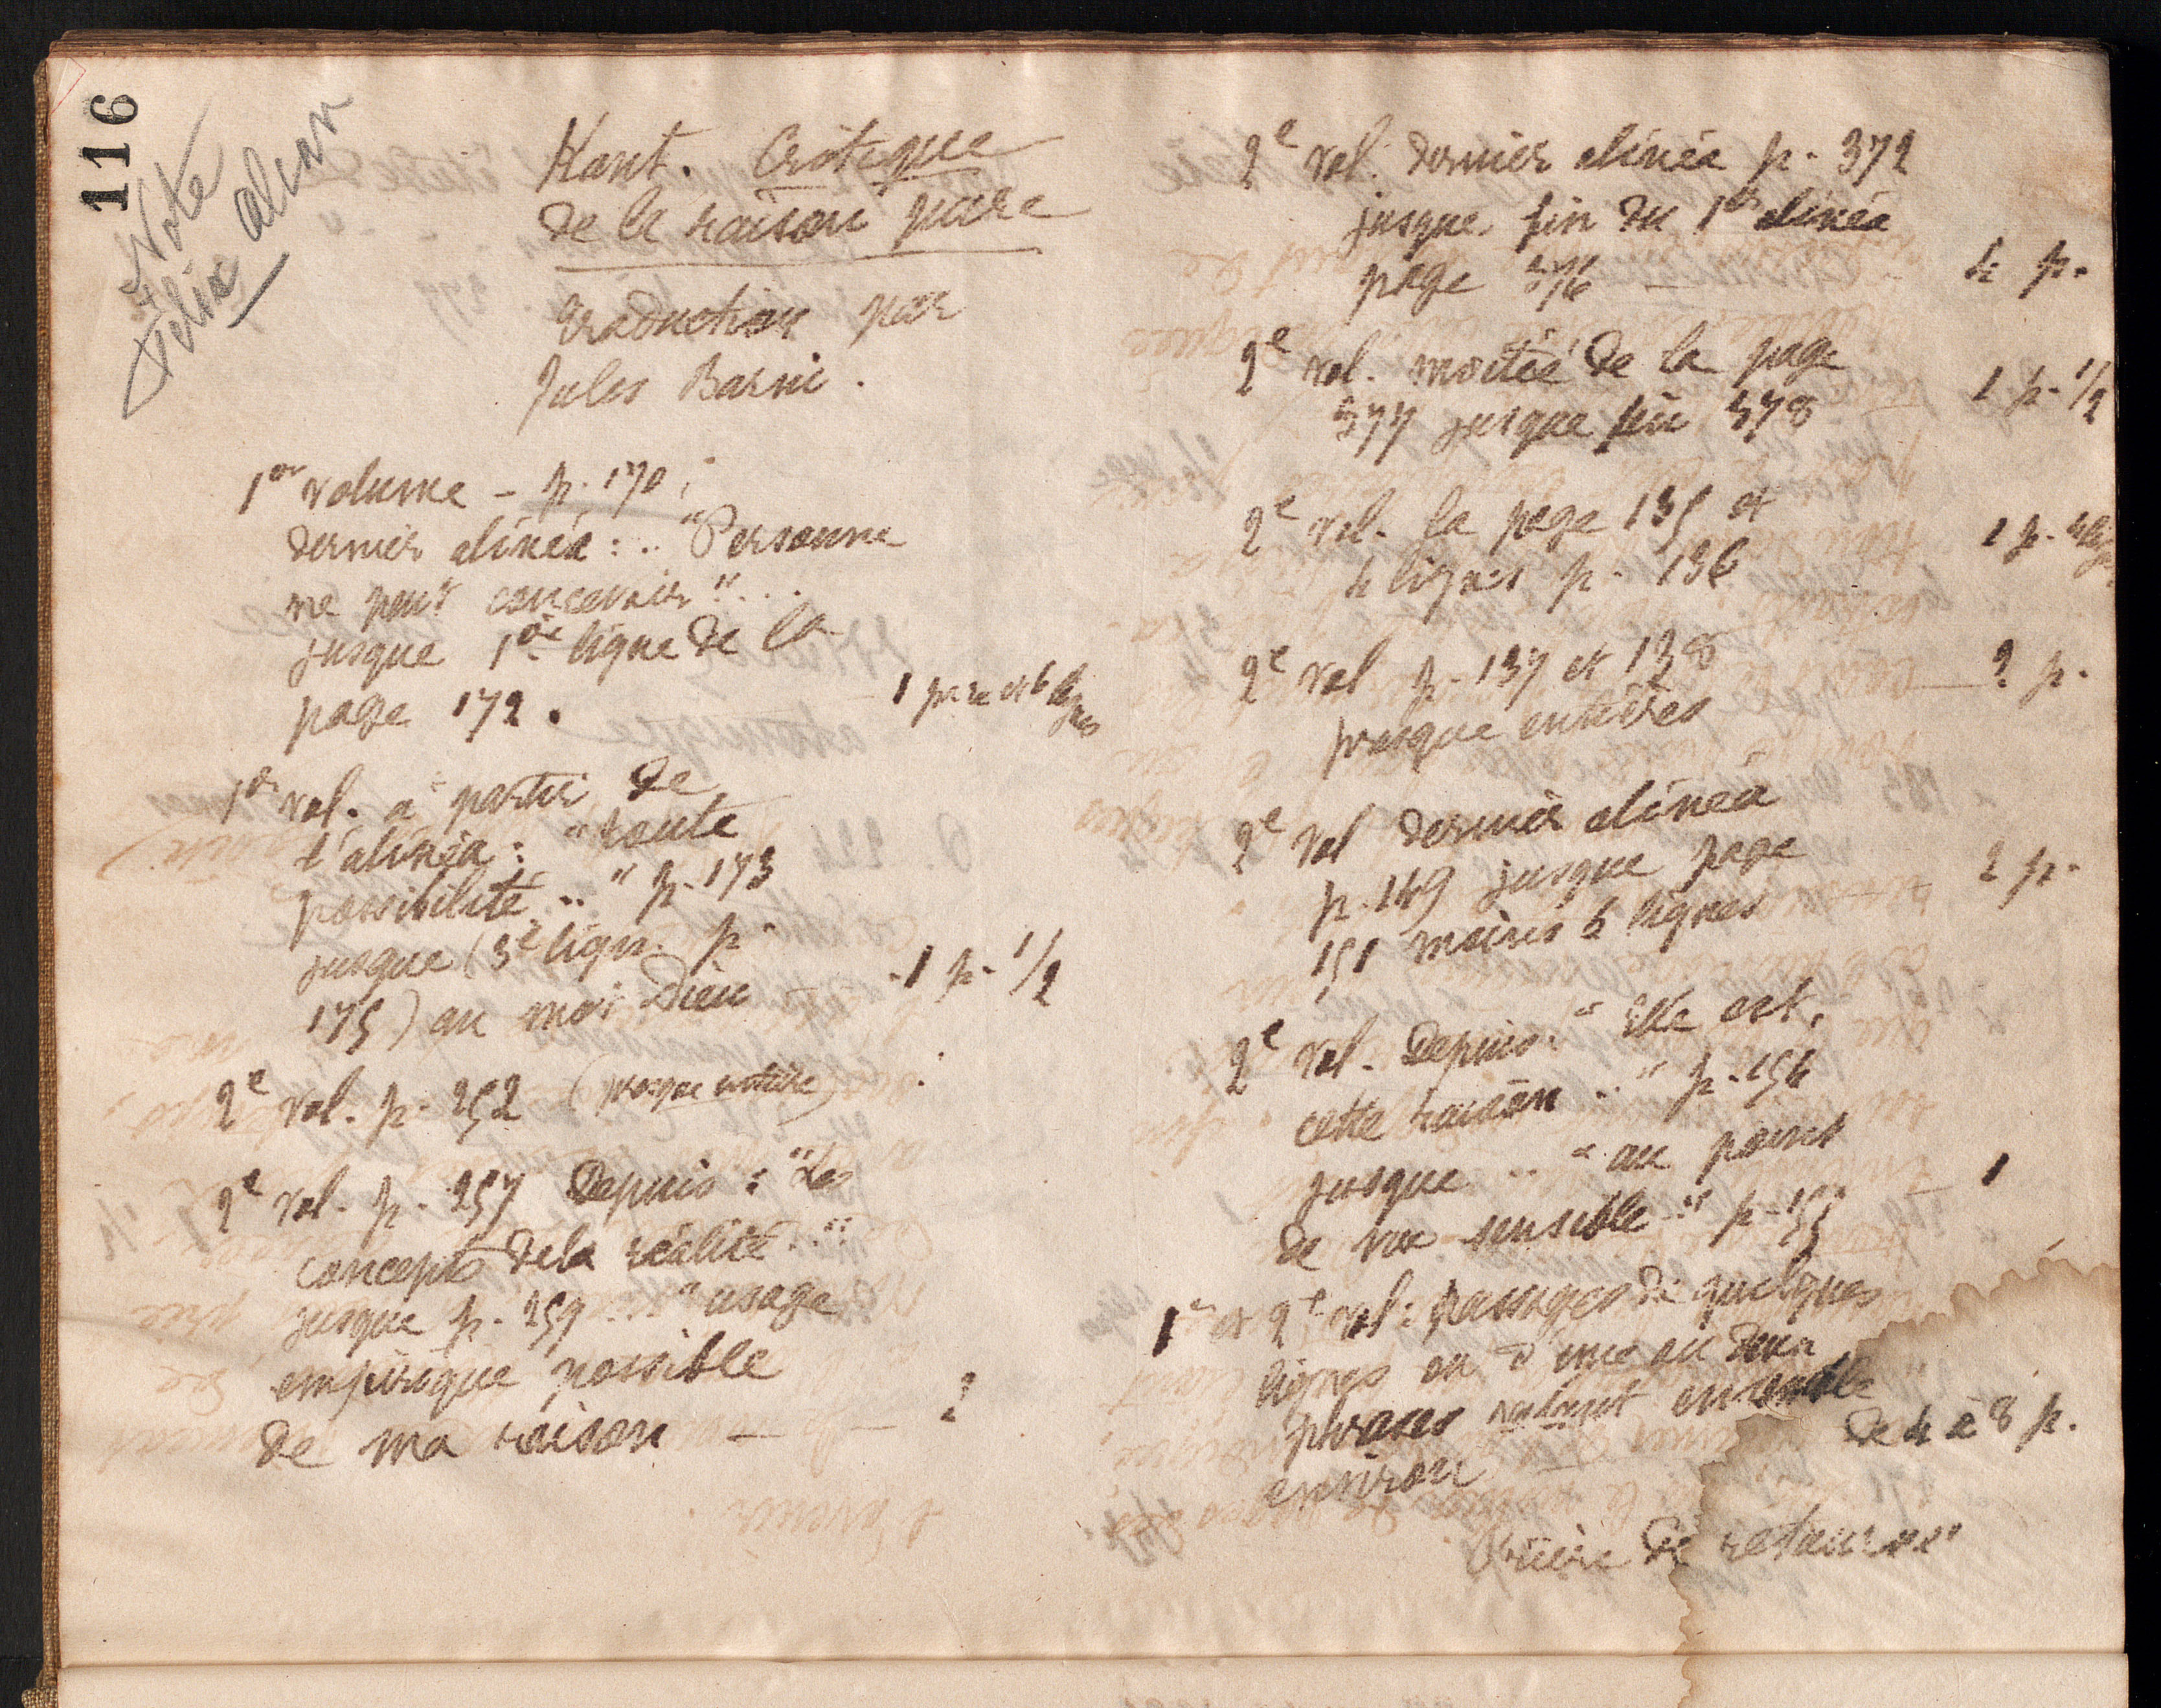 116
Note
Felix Alcan
Kant. Critique
de la raison pure
traduction par
Jules Barni.
1er volume - p. 170;
dernier alinéa : .. "Personne
ne peut concevoir"...
jusque 1ère ligne de la
page 172.
1 page et 6 lignes
1er vol. à partir de
l'alinéa : "toute
possibilité .." p. 173
jusque (3e lign. p.
175) au mot Dieu - 1 p. 1/2
2e vol. p. 252 (presque entière)
2e vol. p. 257 Depuis : "Les
concepts de la réalité .."
jusque p. 259 ... "usage
empirique possible
de ma raison — 2
2e vol. dernier alinéa p. 372
jusque fin du 1er alinéa
page 376 — 4 p.
2e vol. moitié de la page
377 jusque fin 378
1 p. 1/2
2e vol. la page 135 et
4 lignes p. 136
1 p. 4 lig
2e vol p. 137 et 138 — 2 p.
presque entières
2e vol dernier alinéa
p. 149 jusque page
151 moins 6 lignes
2 p.
2e vol. Depuis : "Elle est,
cette raison .." p. 154
jusque .. "au point
de vue sensible .." p. 155
— 1
1er et 2e vol : passages de quelques
lignes ou d'une ou deux
phrases valant ensemble
environ
de 4 à 8 p.
Prière de retourner